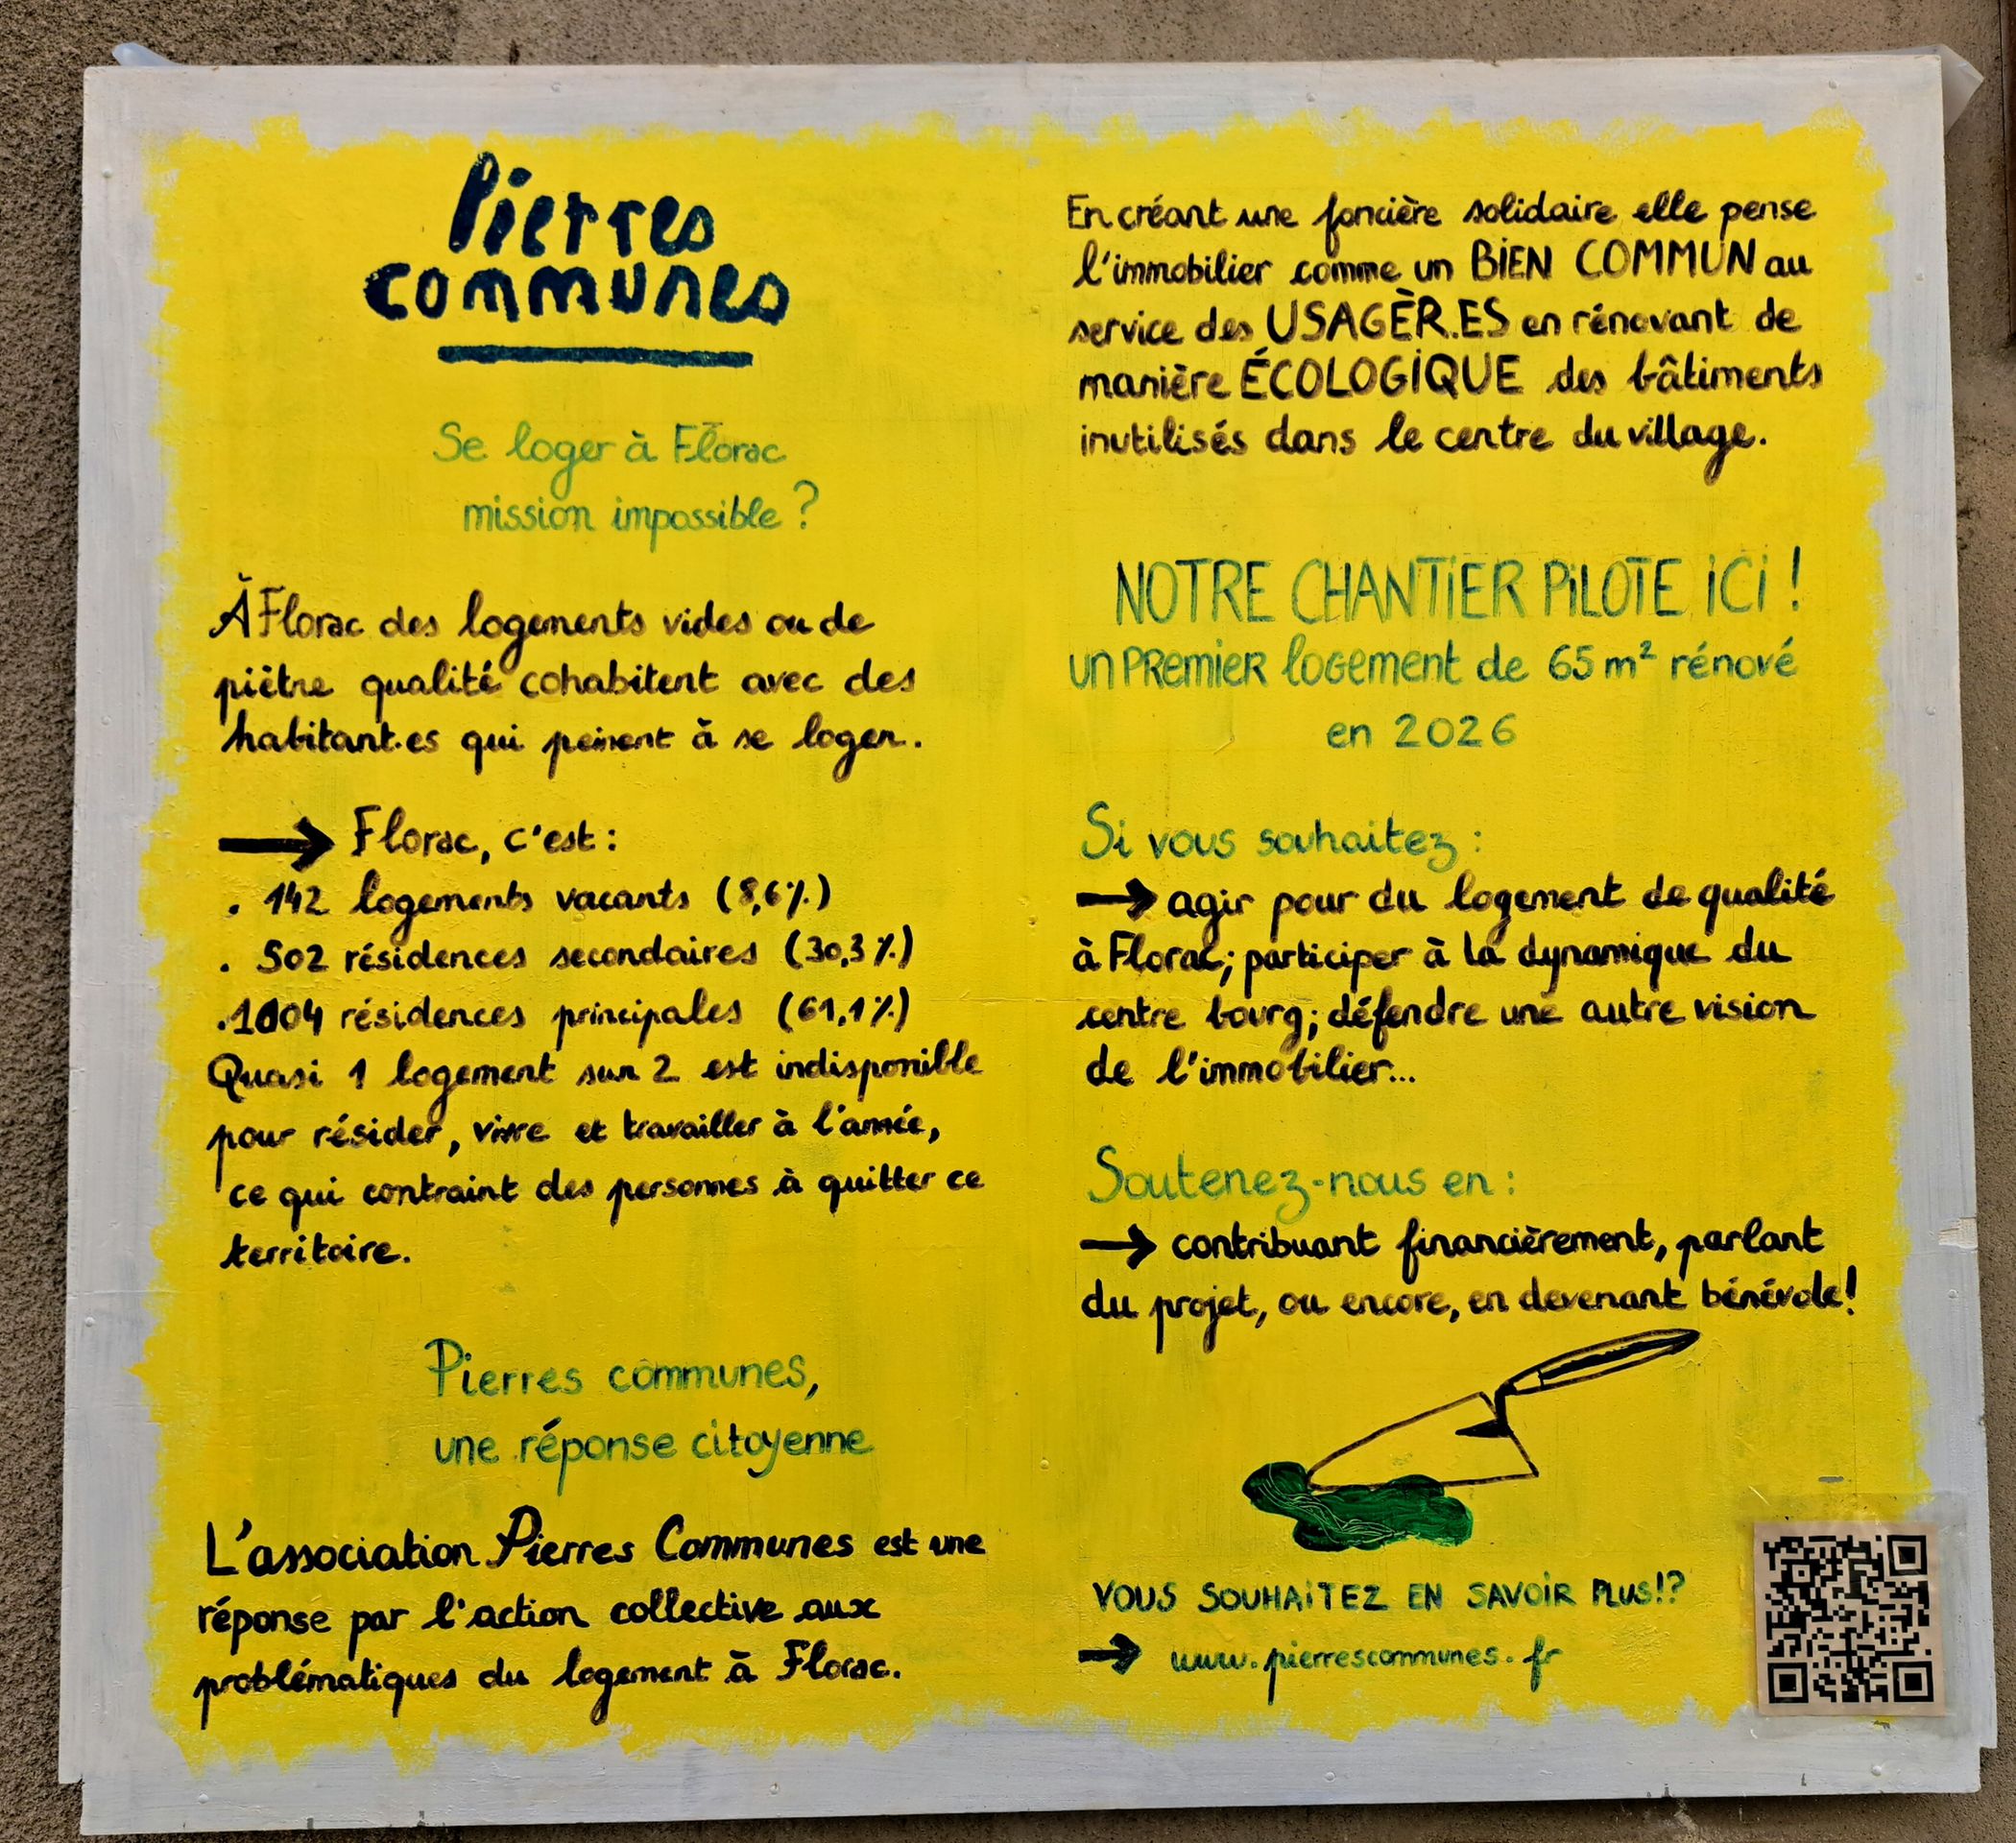 Pierres
communes
Se loger à Florac
mission impossible ?
À Florac des logements vides ou de
piètre qualité cohabitent avec des
habitant.es qui peinent à se loger.
→ Florac, c'est :
. 142 logements vacants (8,6%)
. 502 résidences secondaires (30,3%)
. 1004 résidences principales (61,1%)
Quasi 1 logement sur 2 est indisponible
pour résider, vivre et travailler à l'année,
ce qui contraint des personnes à quitter ce
territoire.
Pierres communes,
une réponse citoyenne
L'association Pierres Communes est une
réponse par l'action collective aux
problématiques du logement à Florac.
En créant une foncière solidaire elle pense
l'immobilier comme un BIEN COMMUN au
service des USAGÈR.ES en rénovant de
manière ÉCOLOGIQUE des bâtiments
inutilisés dans le centre du village.
NOTRE CHANTIER PILOTE ICI !
un PREMIER logement de 65 m² rénové
en 2026
Si vous souhaitez :
→ agir pour du logement de qualité
à Florac; participer à la dynamique du
centre bourg; défendre une autre vision
de l'immobilier...
Soutenez-nous en :
→ contribuant financièrement, parlant
du projet, ou encore, en devenant bénévole!
VOUS SOUHAITEZ EN SAVOIR PLUS!?
→ www.pierrescommunes.fr